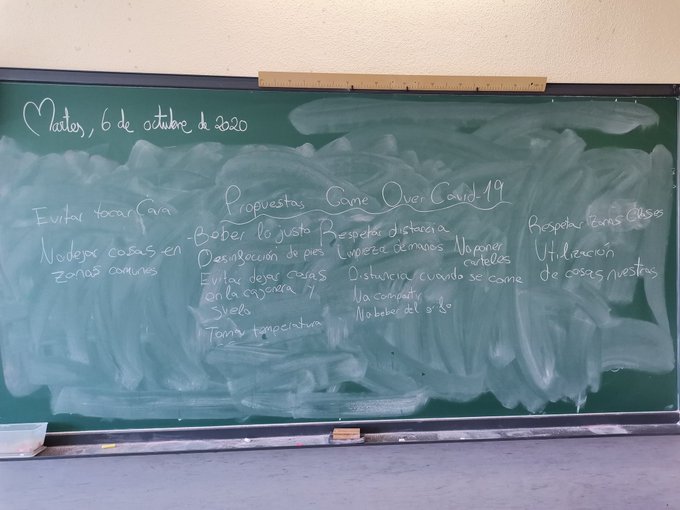 Martes, 6 de octubre de 2020
Propuestas Game Over Covid-19
Evitar tocar Cara
No dejar cosas en
zonas comunes
-Beber lo justo
Desinfección de pies
Evitar dejar cosas
en la cajonera y
suelo
Tomar temperatura
Respetar distancia
Limpieza de manos
No poner
carteles
Distancia cuando se come
No compartir
No beber del
Respetar zonas clases
Utilización
de cosas nuestras